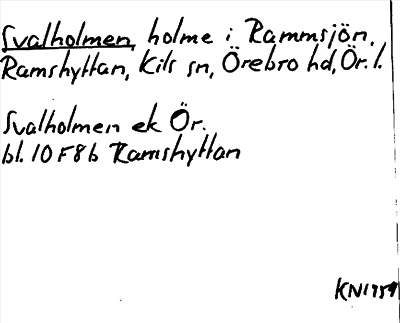 Svalholmen, holme i Rammsjön,
Ramshyttan, Kils sn, Örebro hd, Ör. l.
Svalholmen ek Ör.
bl. 10 F 8 b Ramshyttan